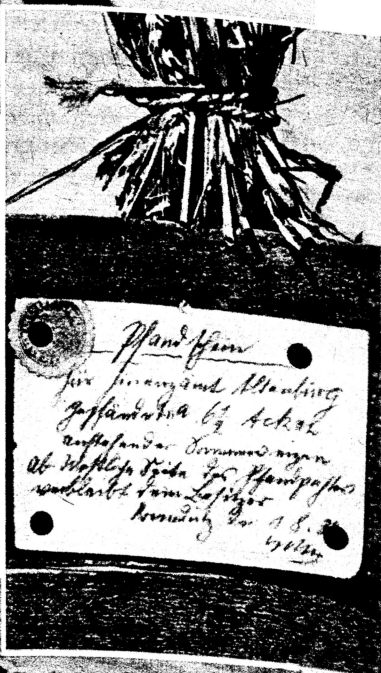 Pfandschein
für Finanzamt Altenburg
gepfändet a. 6½ Acker
anstehender Sommerweizen
Ab Westliche Seite des Pfandpfahles
verbleibt dem Besitzer
den 1. 8.